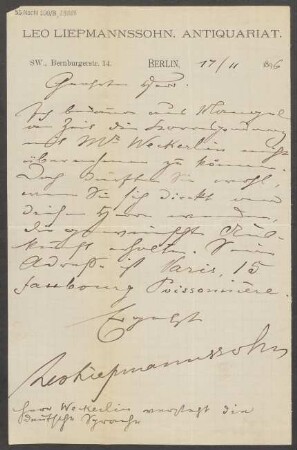 LEO LIEPMANNSSOHN. ANTIQUARIAT.
SW., Bernburgerstr. 14. BERLIN, 17/11
Geehrter Herr.
Ich bedaure aus Mangel
an Zeit die Correspondenz
mit Mr Weckerlin nicht
übernehmen zu können.
Doch dürften Sie wohl,
wenn Sie sich direkt an
diesen Herrn wenden,
die gewünschte Aus-
kunft erhalten. Seine
Adresse ist Paris, 15
faubourg Poissonnière.
Ergebenst
LeoLiepmannssohn
Herr Weckerlin versteht die
deutsche Sprache